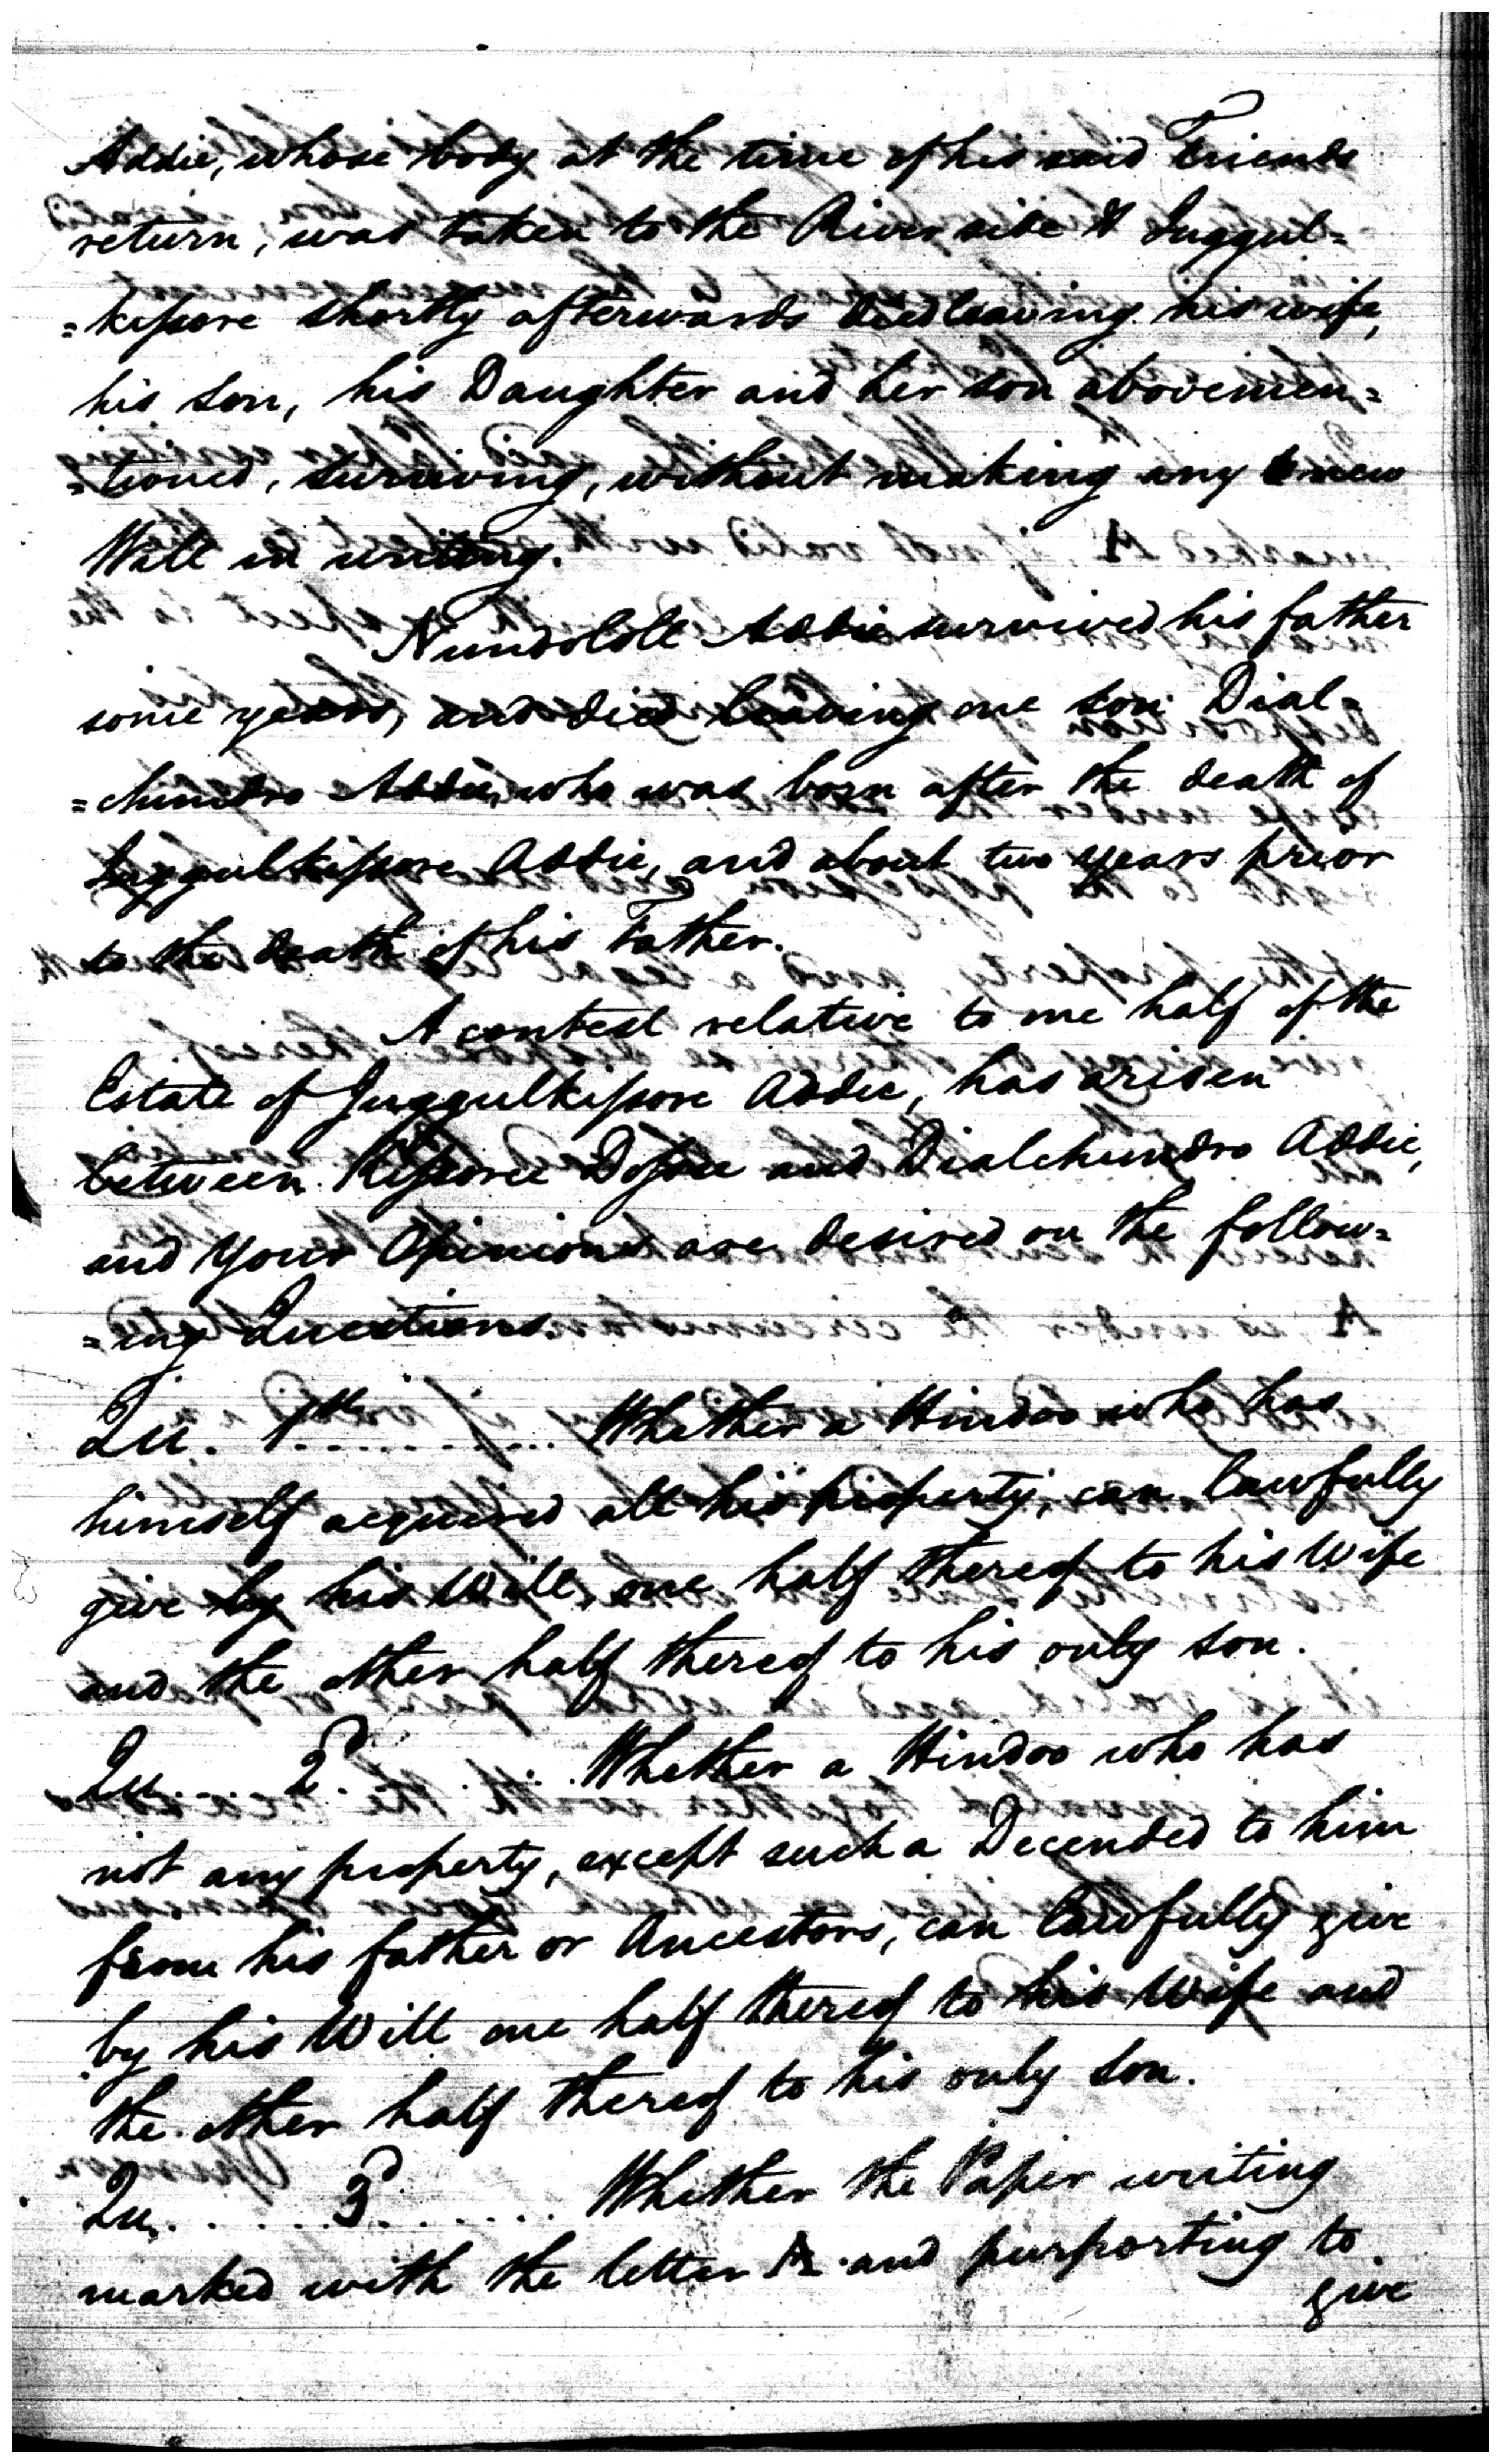 Addie, whose body at the time of his said Friends
return, was taken to the River side & Juggul=
=kissore shortly afterwards died leaving his wife,
his Son, his Daughter and her son abovemen=
=tioned, surviving, without making any new
Will in writing.
Nundololl Addie survived his father
some years, and died leaving one son Dial=
=chundro Addie, who was born after the death of
Juggulkissore Addie, and about two years prior
to the death of his Father.
A contest relative to one half of the
Estate of Juggulkissore Addie, has arisen
between Kissoree Dossee and Dialchundro Addie,
and Your Opinions are desired on the follow=
=ing Questions.
Qu. 1st .......... Whether a Hindoo who has
himself acquired all his property, can lawfully
give by his Will, one half thereof to his Wife
and the other half thereof to his only son.
Qu.... 2d. .... Whether a Hindoo who has
not any property, except such a Decended to him
from his father or Ancestors, can lawfully give
by his Will one half thereof to his Wife and
the other half thereof to his only Son.
Qu...... 3d ...... Whether the Paper writing
marked with the letter A and purporting to
give